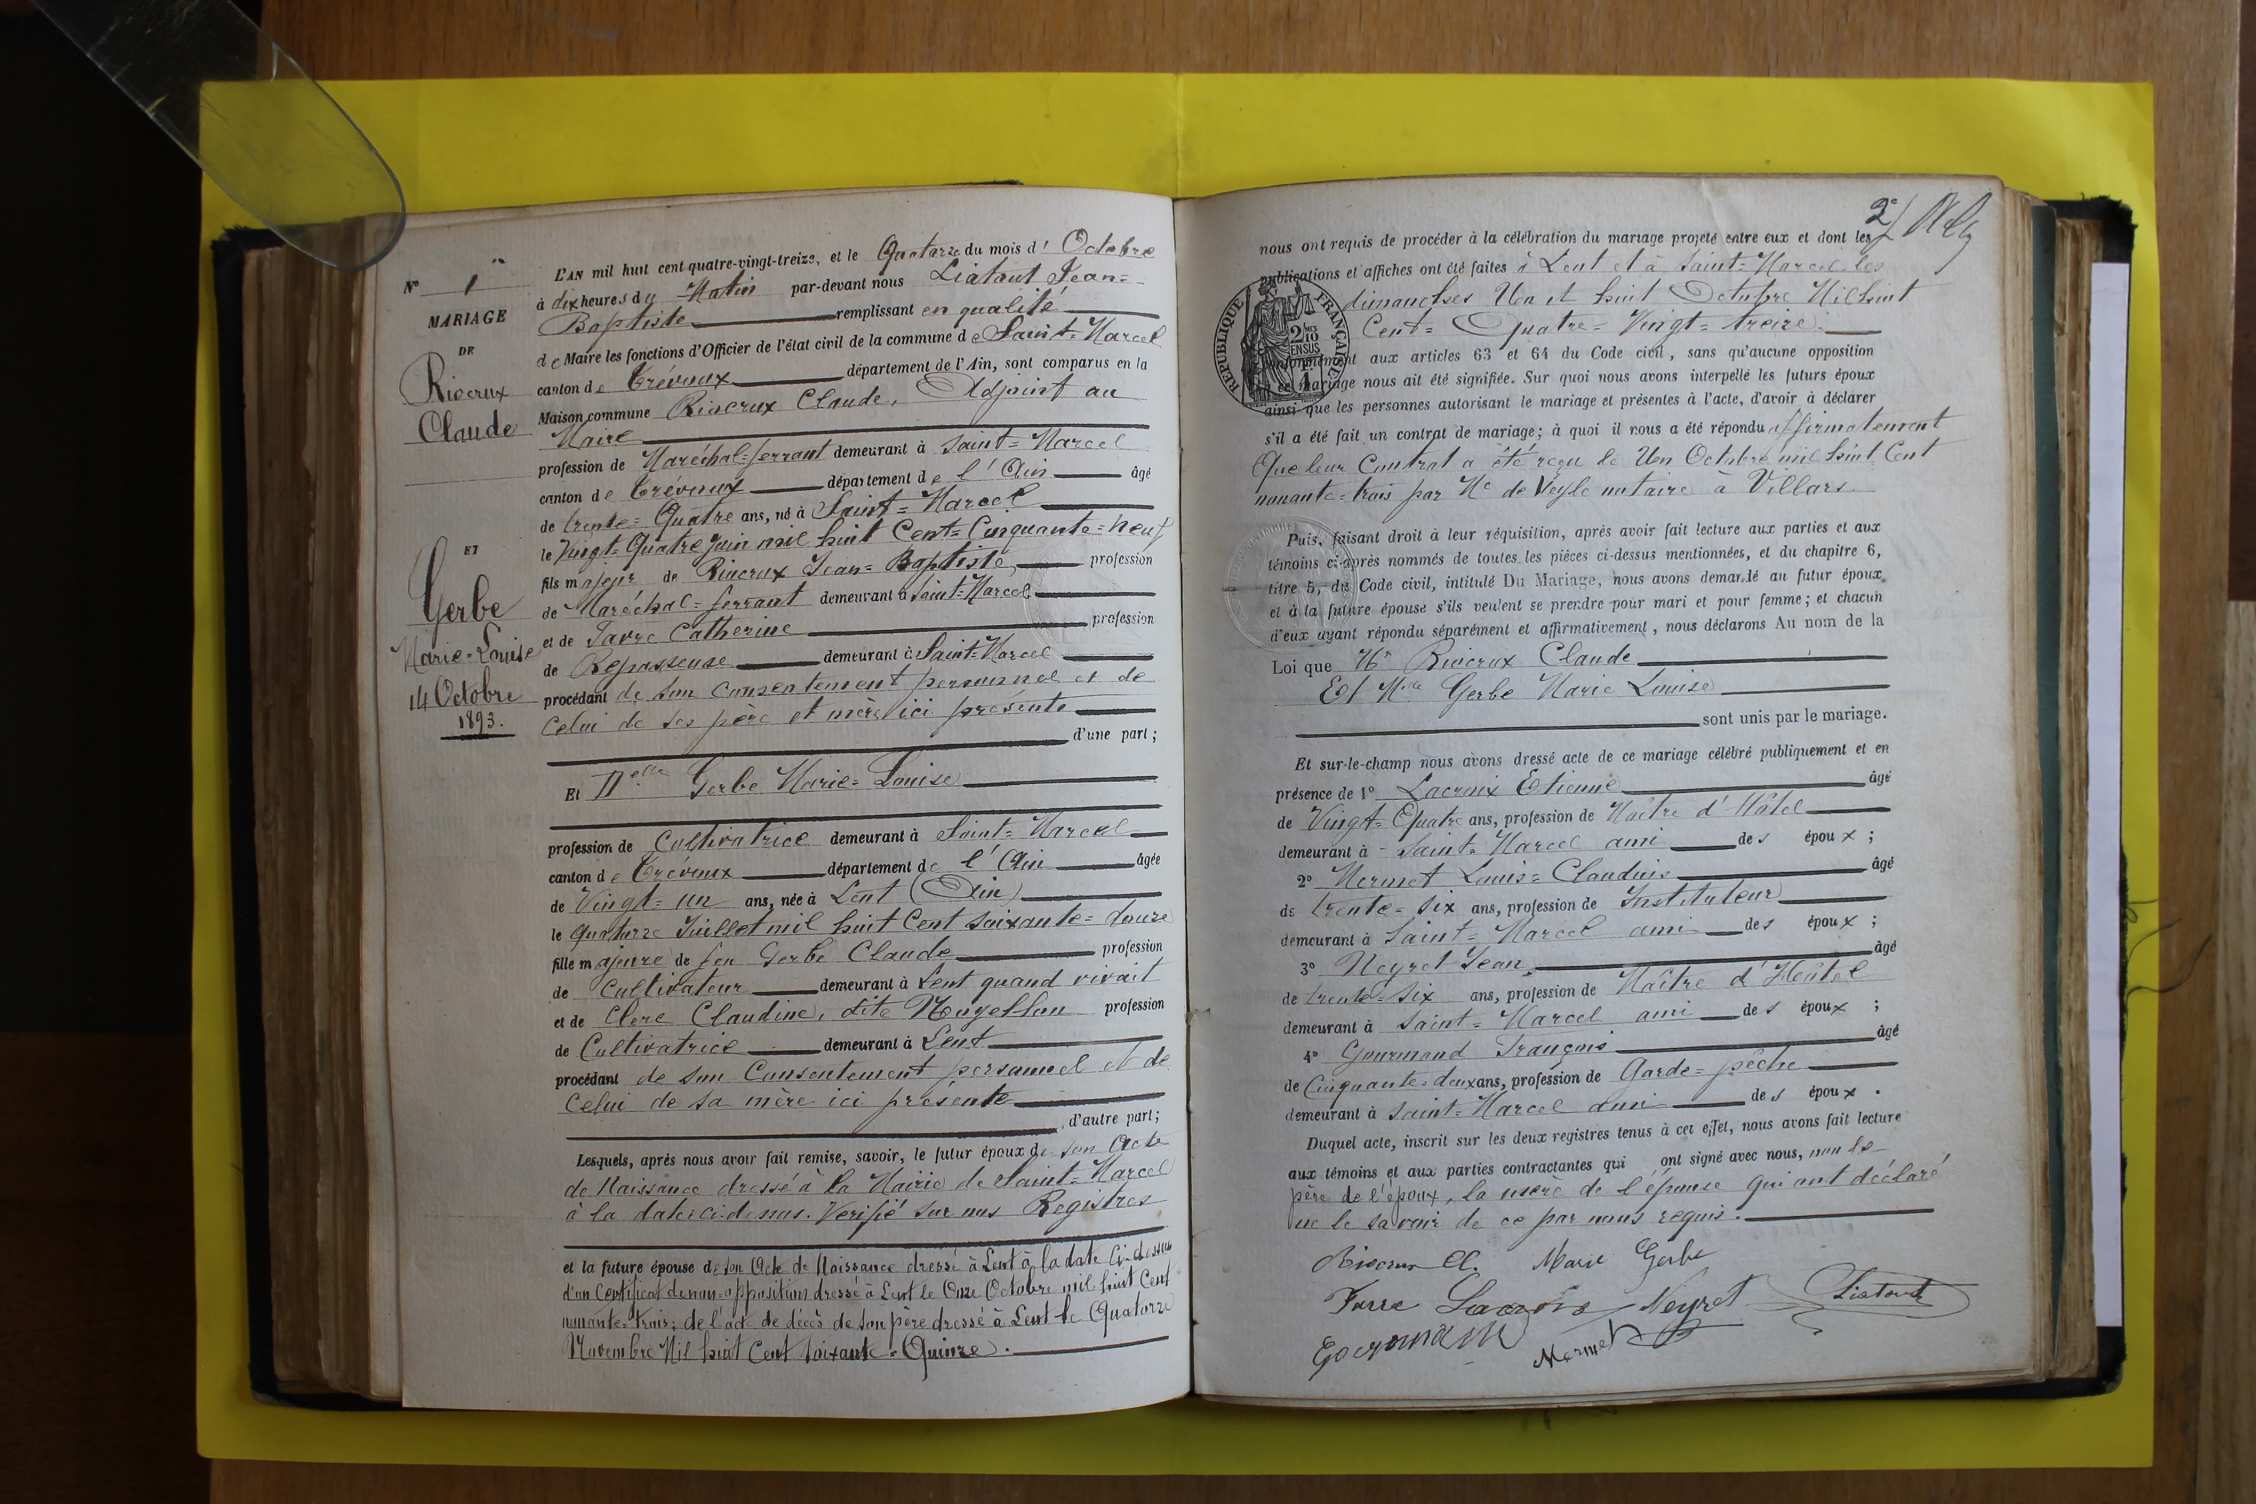 N° 1er
MARIAGE
DE
Rivoeux
Claude
ET
Gerbe
Marie-Louise
14 Octobre
1893.
L'AN mil huit cent quatre-vingt-treize, et le Quatorze du mois d' Octobre
à dix heures du Matin par-devant nous Liataut Jean=
Baptiste remplissant en qualité
de Maire les fonctions d'Officier de l'état civil de la commune de Saint=Marcel
canton de Trévoux département de l'Ain, sont comparus en la
Maison commune Rivoeux Claude, Adjoint au
Maire
profession de Maréchal=ferrant demeurant à Saint=Marcel
canton de Trévoux département de l'Ain âgé
de trente=Quatre ans, né à Saint=Marcel
le Vingt=Quatre Juin mil huit Cent=Cinquante=neuf
fils majeur de Rivoeux Jean=Baptiste, profession
de Maréchal=ferrant demeurant à Saint=Marcel
et de Favre Catherine profession
de Repasseuse demeurant à Saint=Marcel
procédant de son Consentement personnel et de
Celui de ses père et mère ici présents
d'une part ;
Et Delle Gerbe Marie=Louise
profession de Cultivatrice demeurant à Saint=Marcel
canton de Trévoux département de l'Ain âgée
de Vingt=un ans, née à Lent (Ain)
le quatorze Juillet mil huit Cent soixante=douze
fille majeure de feu Gerbe Claude profession
de Cultivateur demeurant à Lent quand vivait
et de Clerc Claudine, dite profession
de Cultivatrice demeurant à Lent
procédant de son Consentement personnel et de
Celui de sa mère ici présente
d'autre part ;
Lesquels, après nous avoir fait remise, savoir, le futur époux de son Acte
de Naissance dressé à la Mairie de Saint=Marcel
à la date ci-dessus. Vérifié sur nos Registres
et la future épouse de son Acte de Naissance dressé à Lent à la date Ci-dessus
d'un Certificat de non=opposition dressé à Lent le Onze Octobre mil huit Cent
nonante-trois; de l'acte de décès de son père dressé à Lent le Quatorze
Novembre Mil huit Cent soixante=Quinze.
2e
nous ont requis de procéder à la célébration du mariage projeté entre eux et dont les
publications et affiches ont été faites à Lent et à Saint=Marcel les
dimanches Un et huit Octobre Mil huit
Cent= Quatre=Vingt=treize.
RÉPUBLIQUE FRANÇAISE
2/10 EN SUS
conformément aux articles 63 et 64 du Code civil, sans qu'aucune opposition
à ce mariage nous ait été signifiée. Sur quoi nous avons interpellé les futurs époux
ainsi que les personnes autorisant le mariage et présentes à l'acte, d'avoir à déclarer
s'il a été fait un contrat de mariage; à quoi il nous a été répondu affirmativement
Que leur Contrat a été reçu le Un Octobre mil huit Cent
nonante=trois par Me de Veyle notaire à Villars
Puis, faisant droit à leur réquisition, après avoir fait lecture aux parties et aux
témoins ci-après nommés de toutes les pièces ci-dessus mentionnées, et du chapitre 6,
titre 5, du Code civil, intitulé Du Mariage, nous avons demandé au futur époux
et à la future épouse s'ils veulent se prendre pour mari et pour femme; et chacun
d'eux ayant répondu séparément et affirmativement, nous déclarons Au nom de la
Loi que Mr Rivoeux Claude
Et Mlle Gerbe Marie Louise
sont unis par le mariage.
Et sur-le-champ nous avons dressé acte de ce mariage célébré publiquement et en
présence de 1° Lacroix Etienne âgé
de Vingt=Quatre ans, profession de Maître d'Hôtel
demeurant à Saint=Marcel ami des époux ;
2° Mermet Louis=Claudius âgé
de trente=six ans, profession de Instituteur
demeurant à Saint=Marcel ami des époux ;
3° Neyret Jean, âgé
de trente=six ans, profession de Maître d'Hôtel
demeurant à Saint=Marcel ami des époux ;
4° Gourmand François âgé
de Cinquante=deux ans, profession de Garde=pêche
demeurant à Saint=Marcel ami des époux .
Duquel acte, inscrit sur les deux registres tenus à cet effet, nous avons fait lecture
aux témoins et aux parties contractantes qui ont signé avec nous, non le
père de l'époux, la mère de l'épouse qui ont déclaré
ne le savoir de ce par nous requis.
Rivoeux Cl. Marie Gerbe
Favre Lacroix Neyret Liataut
Gourmand Mermet